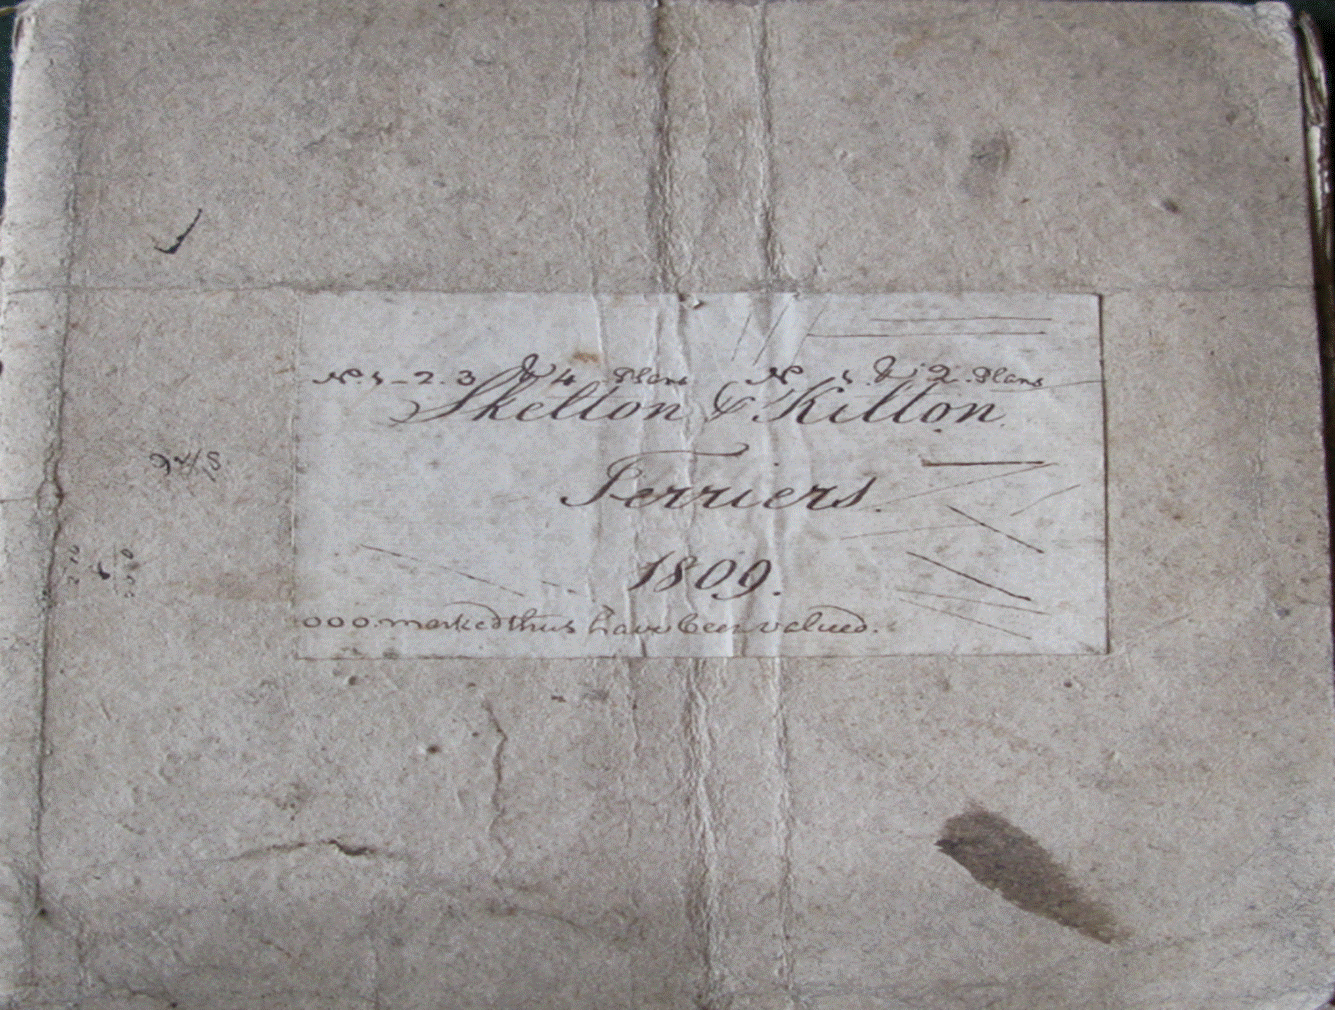 No. 1-2.3 & 4 Plans No. 1 & 2. Plans
Skelton & Kilton.
Terriers.
1809.
000. marked thus have been valued.